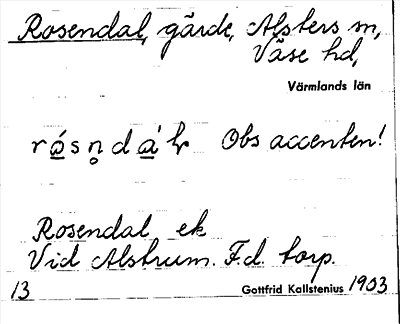 Rosendal, gärde, Alsters sn,
Väse hd,
Värmlands län
rɷ́sn̥dɑ̀ɫ Obs accenten!
Rosendal ek
Vid Alstrum. F.d. torp.
13 Gottfrid Kallstenius 1903